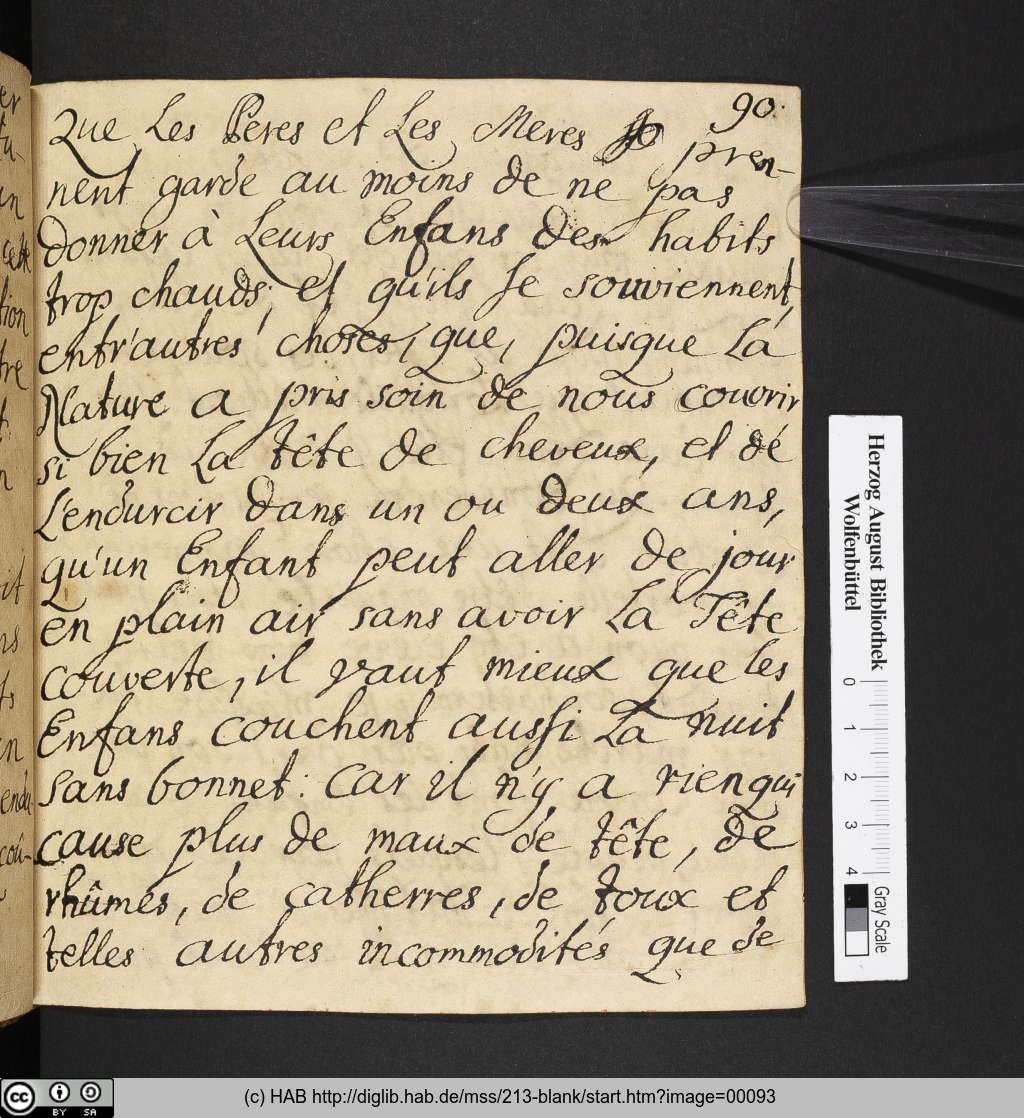 90.
Que Les Peres et Les Meres pren-
nent garde au moins de ne pas
donner à Leurs Enfans des habits
trop chauds; et qu'ils se souviennent,
entr'autres choses, que, puisque La
Nature a pris soin de nous couvrir
si bien La tête de cheveux, et de
L'endurcir dans un ou deux ans,
qu'un Enfant peut aller de jour
en plain air sans avoir La Tête
couverte, il vaut mieux que les
Enfans couchent aussi La nuit
sans bonnet: Car il n'y a rien qui
cause plus de maux de tête, de
rhûmes, de catherres, de toux et
telles autres incommodités que de
Herzog August Bibliothek
Wolfenbüttel
0 1 2 3 4
Gray Scale
cc BY SA
(c) HAB http://diglib.hab.de/mss/213-blank/start.htm?image=00093